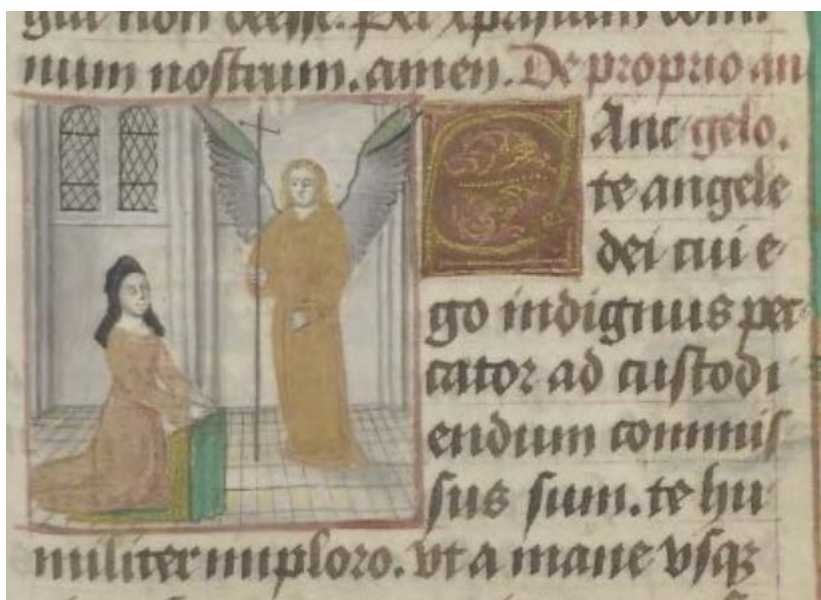 qui non deesse. Per xpristum domi
num nostrum. amen. De proprio an
Sanc gelo.
te angele
dei cui e
go indignus pec
cator ad custodi
endum commis
sus sum. te hu
militer imploro. vt a mane vsqꝫ